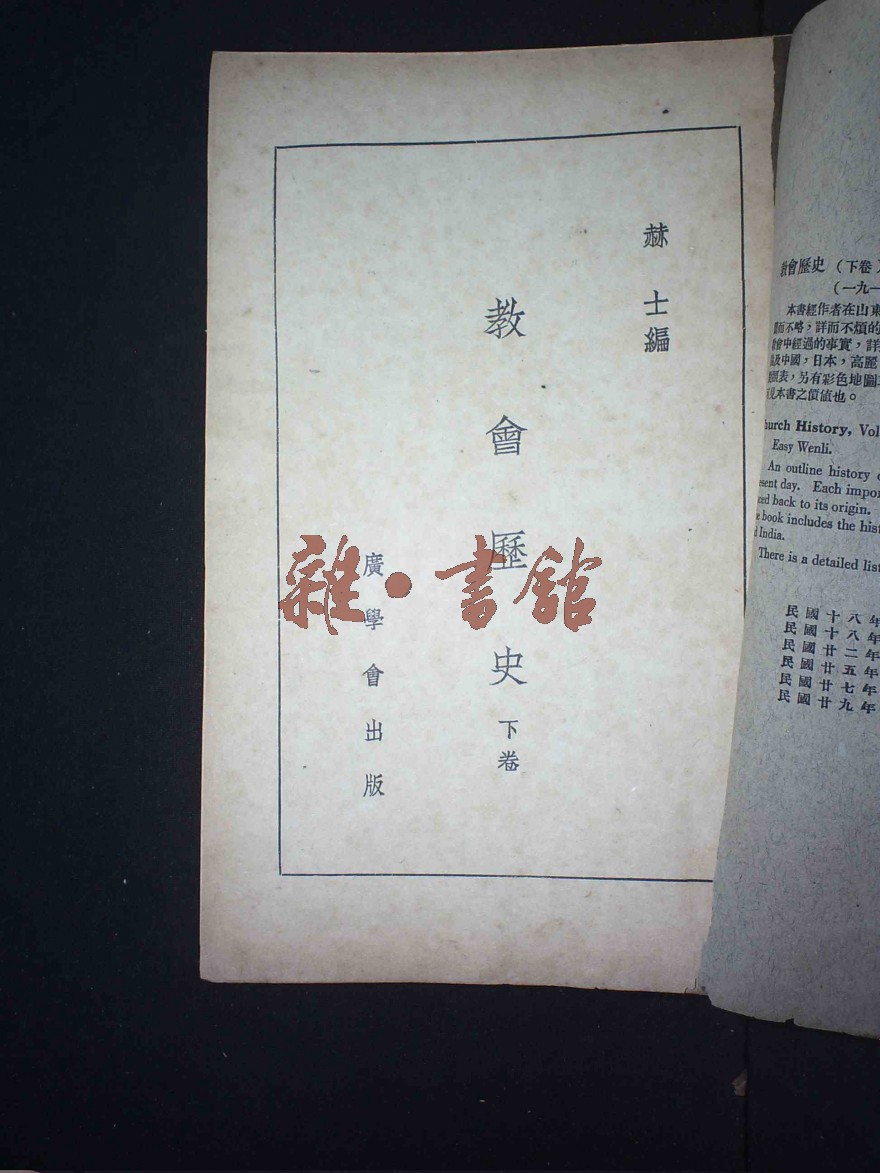 赫士編
教會歷史 下卷
廣學會出版
雜·書館
教會歷史(下卷)
(一九一
本書經作者在山東
而不略,詳而不煩的
會中經過的事實,詳
及中國,日本,高麗
圖表,另有彩色地圖
見本書之價值也。
hurch History, Vol
Easy Wenli.
An outline history
esent day. Each impor
ced back to its origin.
e book includes the hist
d India.
There is a detailed list
民國十八年
民國十八年
民國廿二年
民國廿五年
民國廿七年
民國廿九年